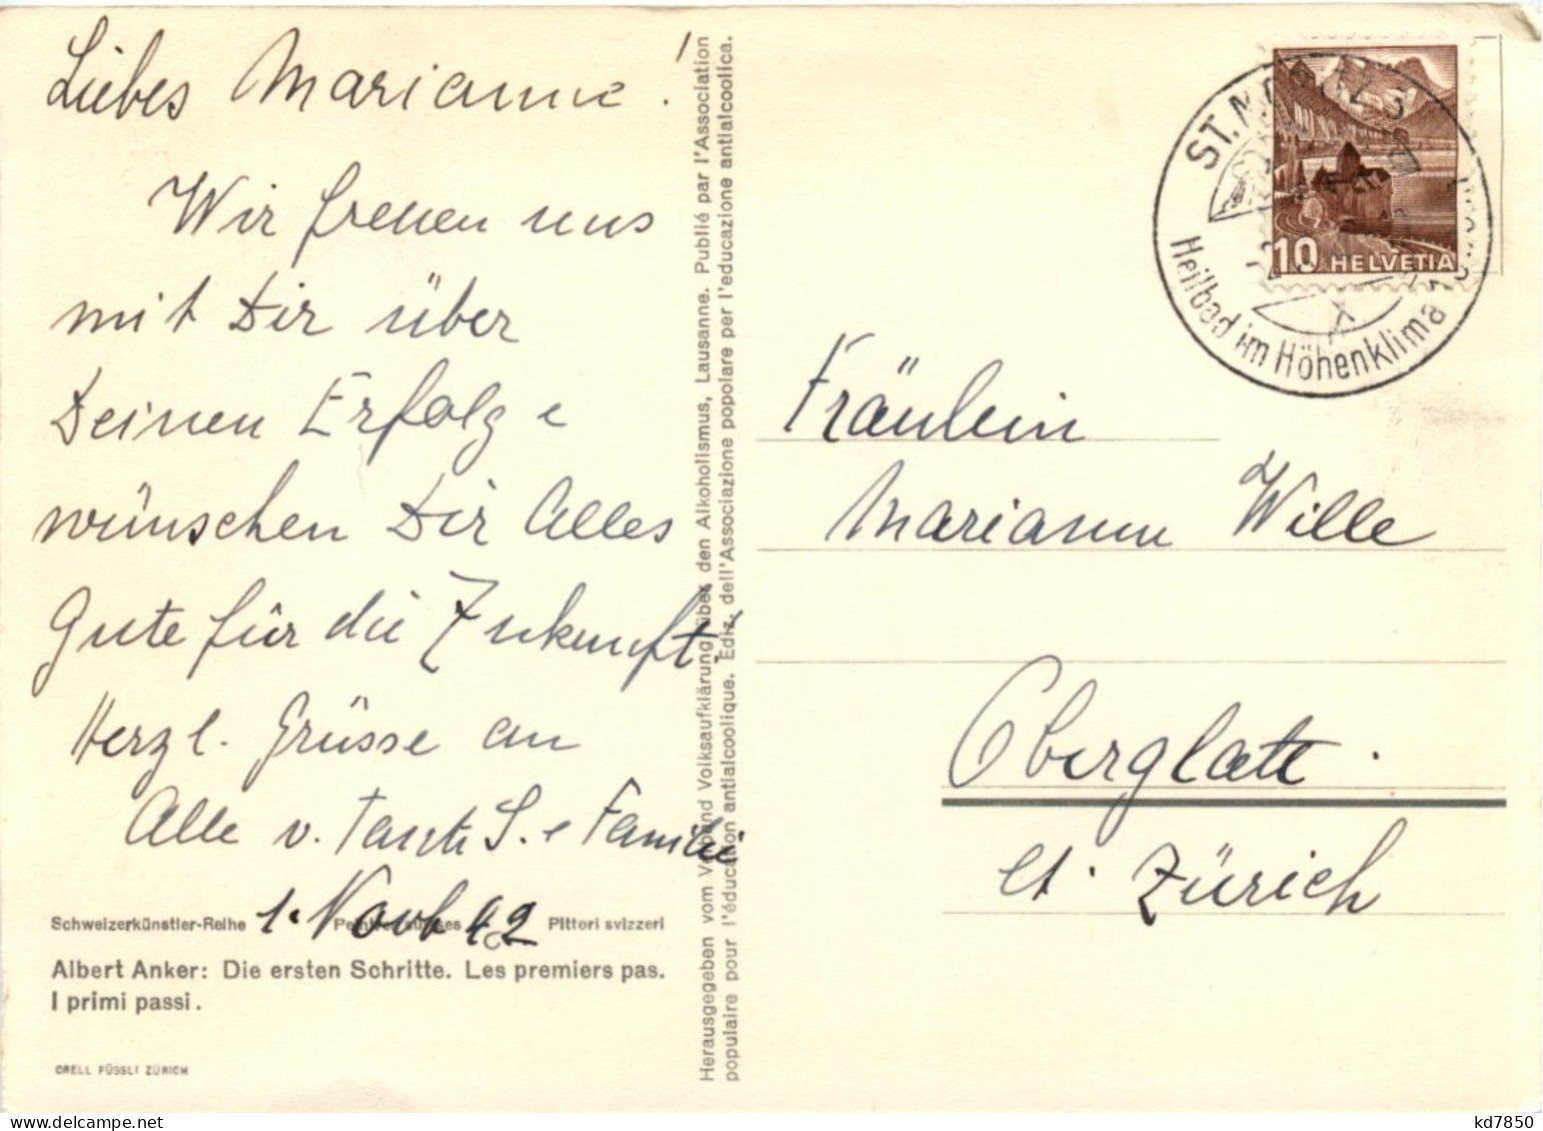 Liebes Marianne!
Wir freuen uns
mit Dir über
Deinen Erfolg e
wünschen Dir Alles
Gute für die Zukunft!
Herzl. Grüsse an
Alle v. Tante S. e Familie
1. Novb 42
Schweizerkünstler-Reihe Peintres suisses Pittori svizzeri
Albert Anker: Die ersten Schritte. Les premiers pas.
I primi passi.
ORELL FÜSSLI ZÜRICH
Herausgegeben vom Verband Volksaufklärung über den Alkoholismus, Lausanne. Publié par l'Association
populaire pour l'éducation antialcoolique. Ediz. dell'Associazione popolare per l'educazione antialcoolica.
ST. MORITZ
Heilbad im Höhenklima
10 HELVETIA
Fräulein
Mariann Wille
Oberglatt.
Ct. Zürich
kd7850